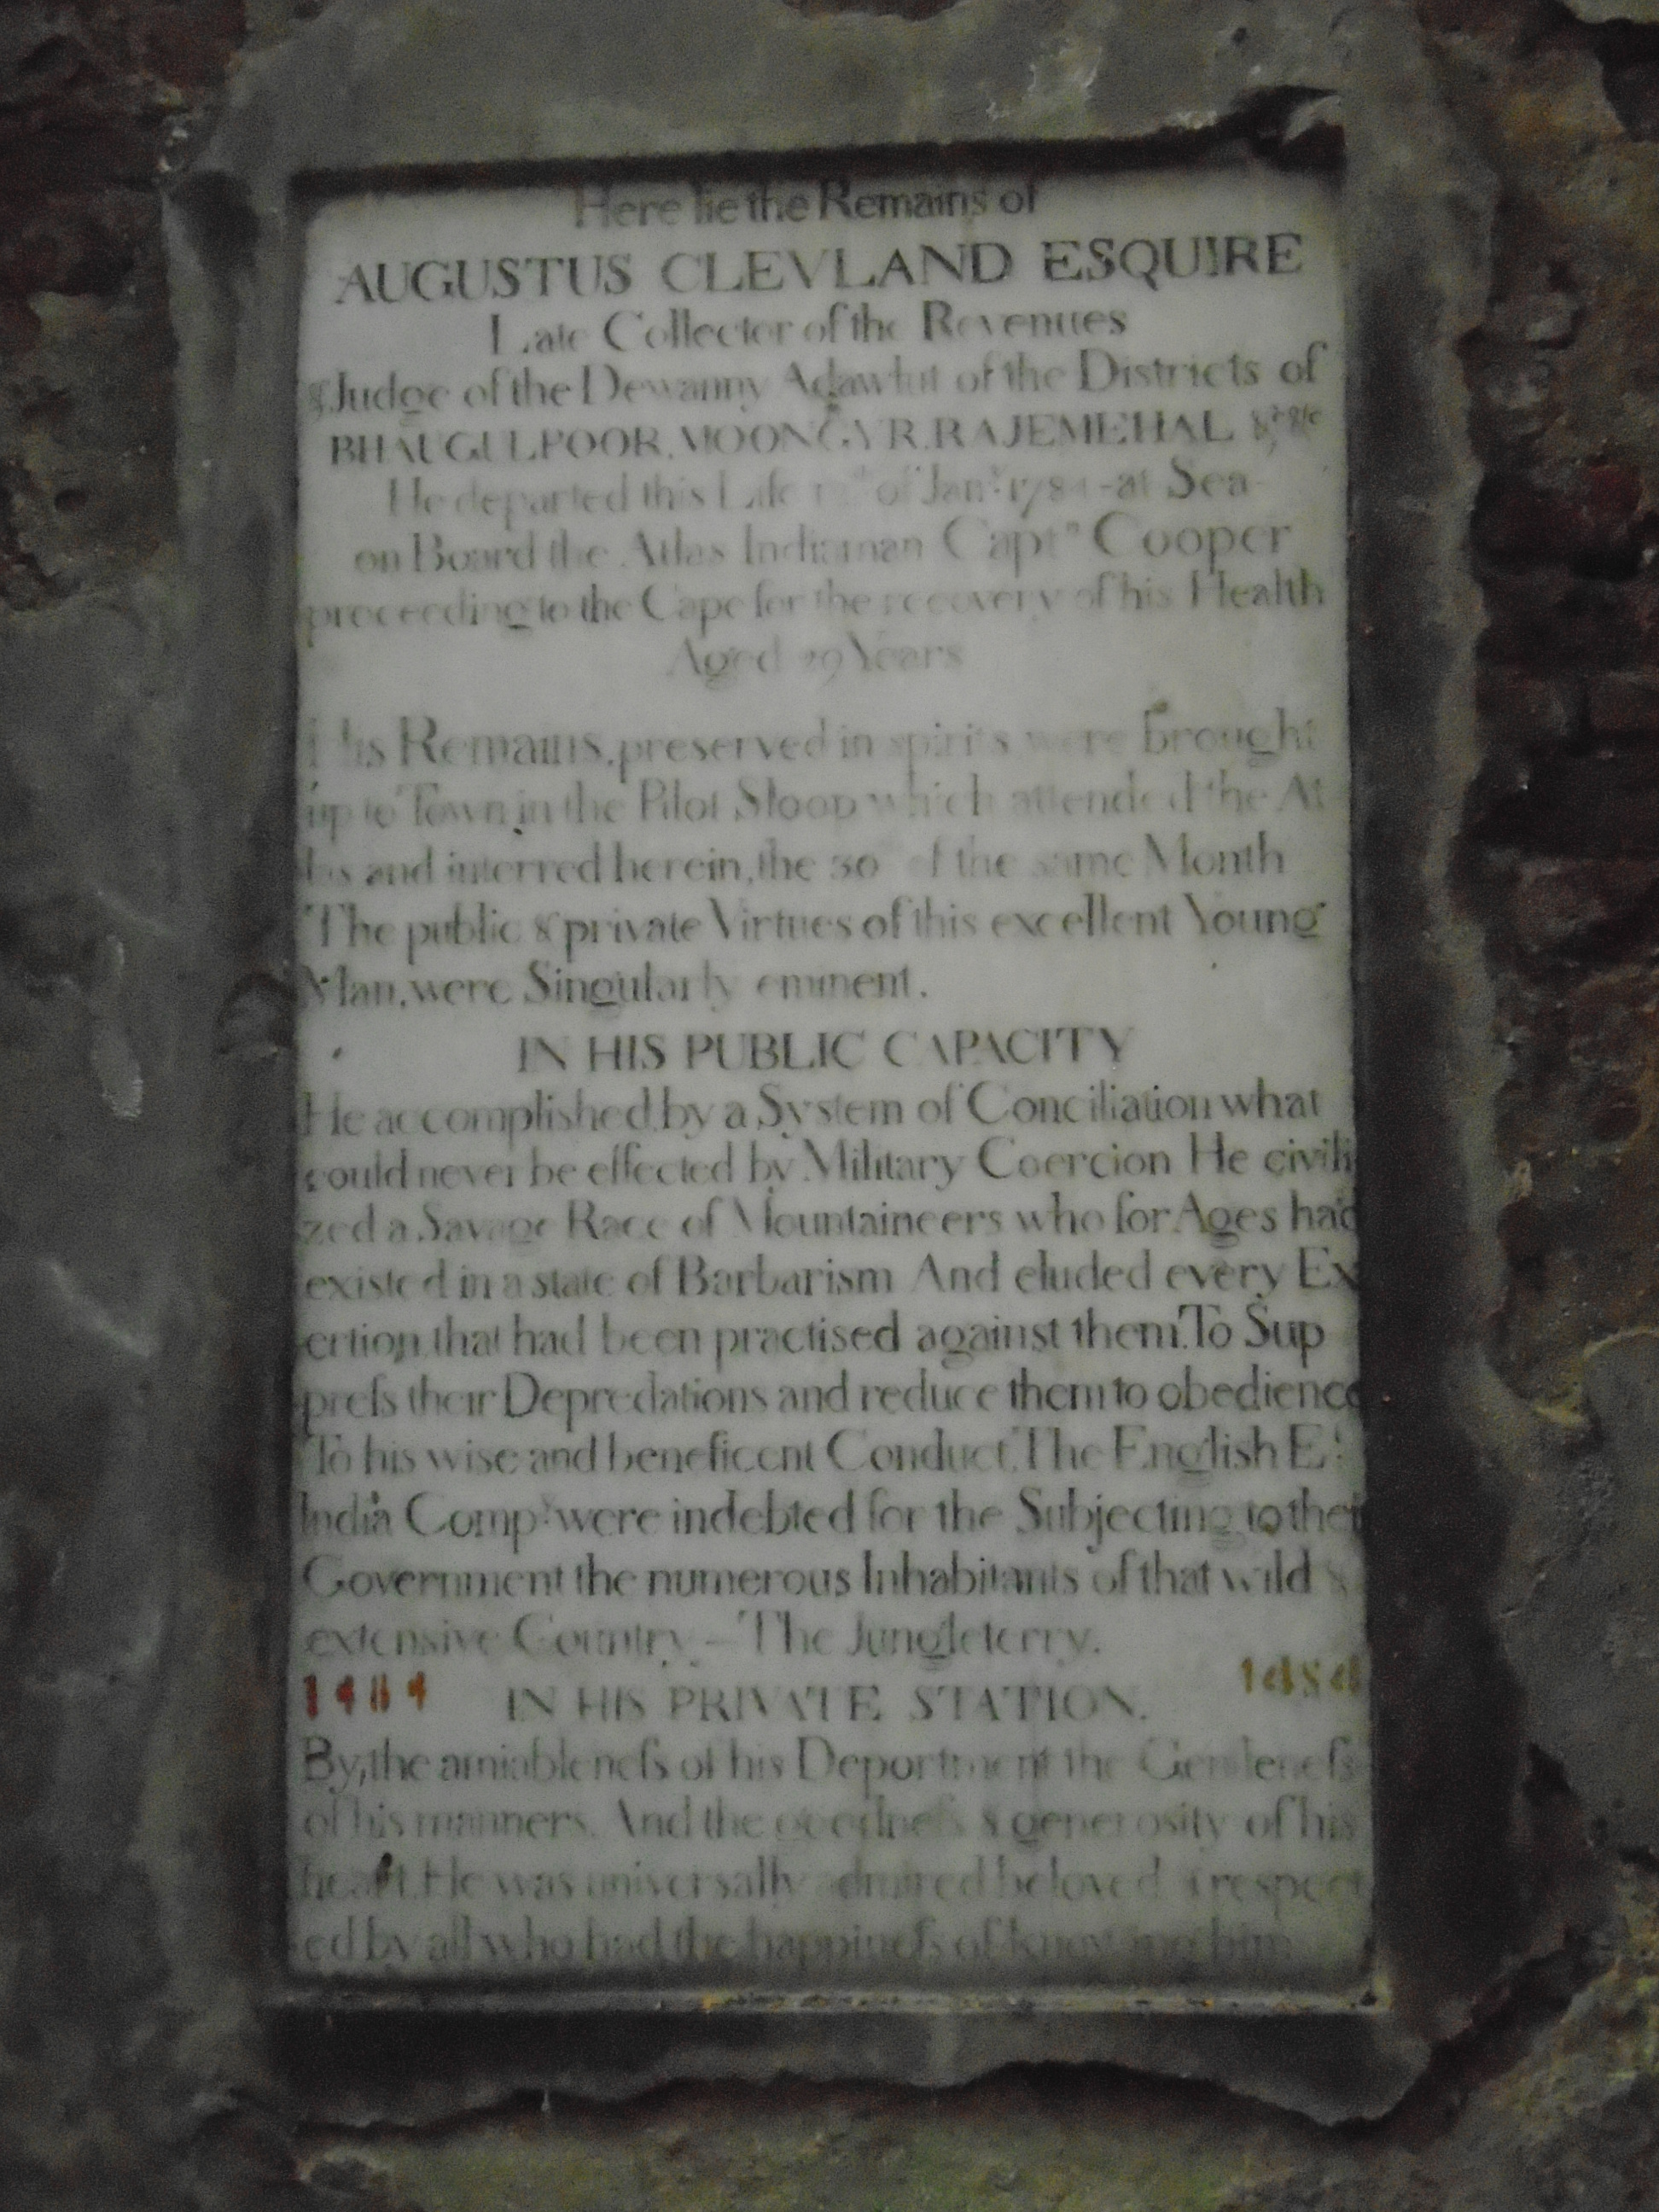 Here lie the Remains of
AUGUSTUS CLEVLAND ESQUIRE
Late Collector of the Revenues
& Judge of the Dewanny Adawlut of the Districts of
BHAUGULPOOR, MOONGYR, RAJEMEHAL &c &c
He departed this Life 12th of Jany 1784 - at Sea
on Board the Atlas Indiaman Captn Cooper
proceeding to the Cape for the recovery of his Health
Aged 29 Years
His Remains, preserved in spirits were brought
up to Town in the Pilot Sloop which attended the At
las and interred herein, the 30 of the same Month
The public & private Virtues of this excellent Young
Man, were Singularly eminent.
IN HIS PUBLIC CAPACITY
He accomplished by a System of Conciliation what
could never be effected by Military Coercion He civili
zed a Savage Race of Mountaineers who for Ages had
existed in a state of Barbarism And eluded every Ex
ertion, that had been practised against them. To Sup
preſs their Depredations and reduce them to obedience
To his wise and beneficent Conduct, The English Et
India Compy were indebted for the Subjecting to their
Government the numerous Inhabitants of that wild &
extensive Country – The Jungleterry.
1484 IN HIS PRIVATE STATION. 1484
By, the amiableneſs of his Deportment the Gentleneſs
of his manners. And the goodneſs & generosity of his
heart. He was universally admired beloved & respect
ed by all who had the happineſs of knowing him